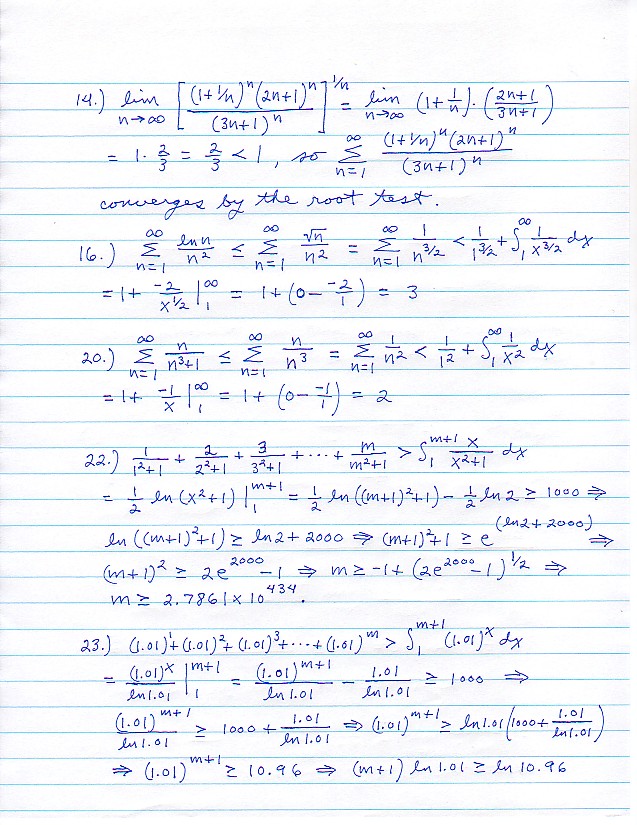 14.) lim n→∞ [ (1+1/n)^n (2n+1)^n / (3n+1)^n ]^1/n = lim n→∞ (1+1/n)·(2n+1 / 3n+1)
= 1·2/3 = 2/3 < 1, so ∞ Σ n=1 (1+1/n)^n (2n+1)^n / (3n+1)^n
converges by the root test.
16.) ∞ Σ n=1 ln n / n² ≤ ∞ Σ n=1 √n / n² = ∞ Σ n=1 1 / n^3/2 < 1 / 1^3/2 + ∫_1^∞ 1 / x^3/2 dx
= 1 + -2 / x^1/2 |_1^∞ = 1 + (0 - -2/1) = 3
20.) ∞ Σ n=1 n / n³+1 ≤ ∞ Σ n=1 n / n³ = ∞ Σ n=1 1/n² < 1/1² + ∫_1^∞ 1/x² dx
= 1 + -1/x |_1^∞ = 1 + (0 - -1/1) = 2
22.) 1 / 1²+1 + 2 / 2²+1 + 3 / 3²+1 + ··· + m / m²+1 > ∫_1^m+1 x / x²+1 dx
= 1/2 ln (x²+1) |_1^m+1 = 1/2 ln ((m+1)²+1) - 1/2 ln 2 ≥ 1000 ⇒
ln ((m+1)²+1) ≥ ln 2 + 2000 ⇒ (m+1)²+1 ≥ e^(ln 2 + 2000) ⇒
(m+1)² ≥ 2e^2000 - 1 ⇒ m ≥ -1 + (2e^2000 - 1)^1/2 ⇒
m ≥ 2.7861 × 10^434.
23.) (1.01)^1 + (1.01)² + (1.01)³ + ··· + (1.01)^m > ∫_1^m+1 (1.01)^x dx
= (1.01)^x / ln 1.01 |_1^m+1 = (1.01)^m+1 / ln 1.01 - 1.01 / ln 1.01 ≥ 1000 ⇒
(1.01)^m+1 / ln 1.01 ≥ 1000 + 1.01 / ln 1.01 ⇒ (1.01)^m+1 ≥ ln 1.01 (1000 + 1.01 / ln 1.01)
⇒ (1.01)^m+1 ≥ 10.96 ⇒ (m+1) ln 1.01 ≥ ln 10.96